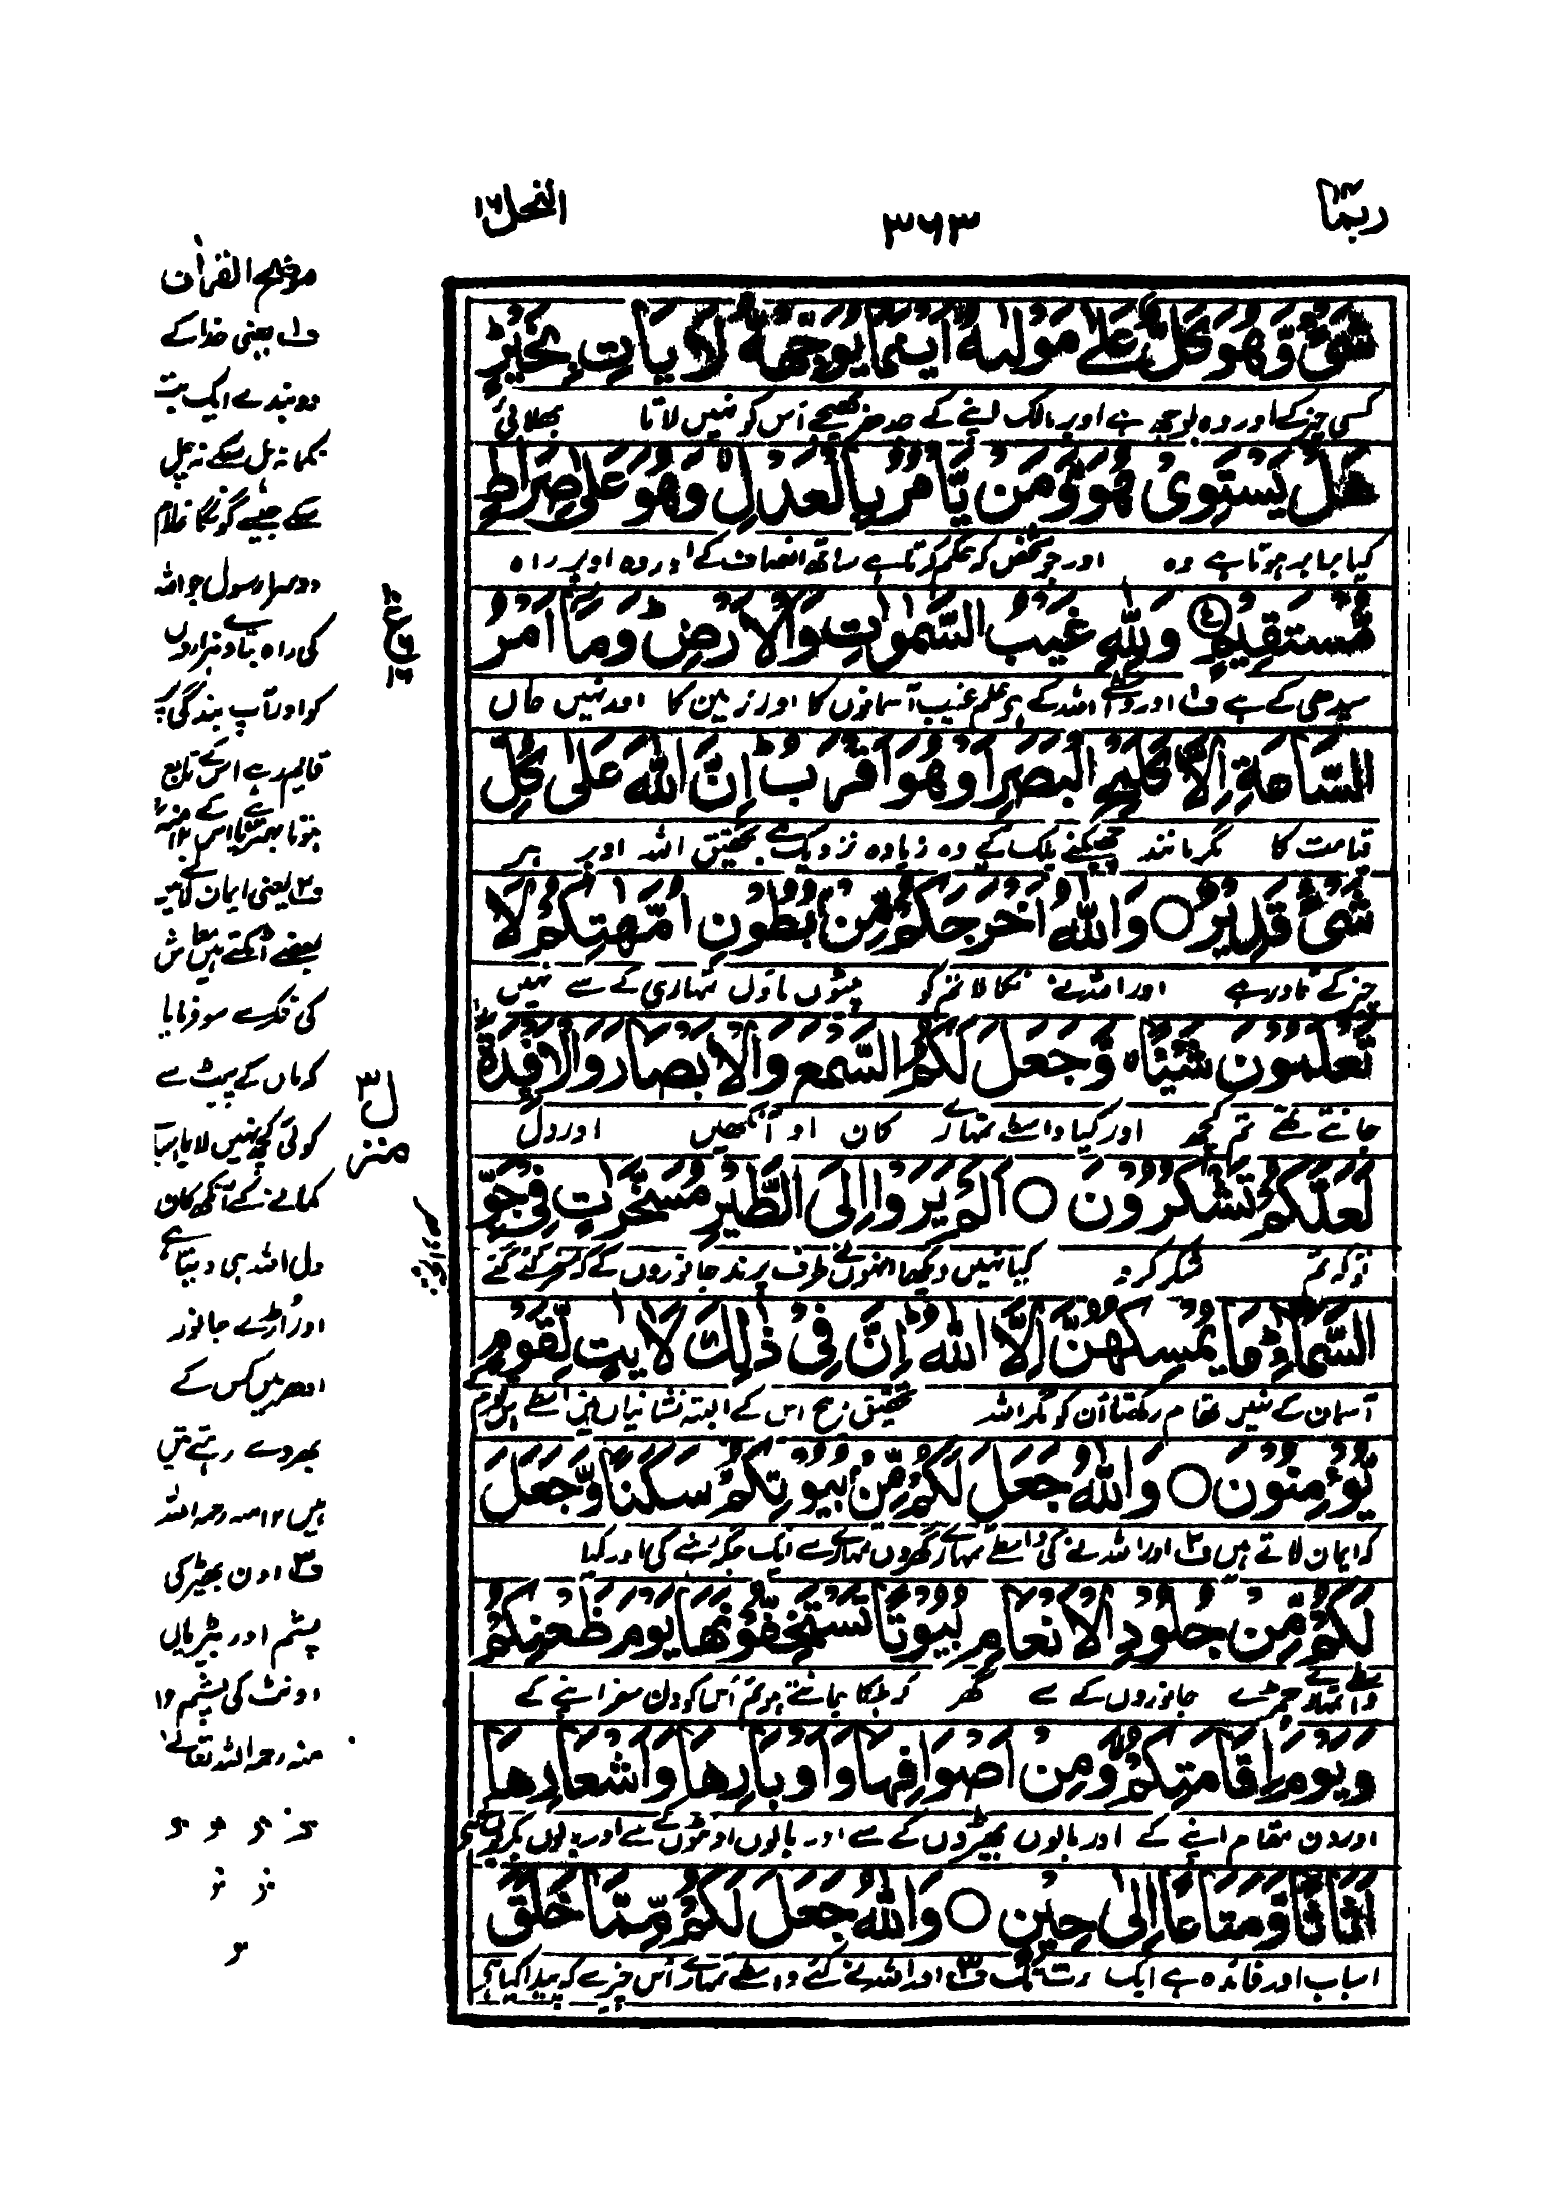 ربما ۱۴
۳۶۳
النحل ۱۶
شَىْءٍ وَّهُوَ كَلٌّ عَلٰى مَوْلٰىهُ اَيْنَمَا يُوَجِّهْهُّ لَا يَاْتِ بِخَيْرٍ
کسی چیز کے اور وہ بوجھ ہے اوپر مالک اپنے کے جدھر بھیجے اس کو نہیں لاتا بھلائی
هَلْ يَسْتَوِىْ هُوَ وَمَنْ يَّاْمُرُ بِالْعَدْلِ وَهُوَ عَلٰى صِرَاطٍ
کیا برابر ہوتا ہے وہ اور جو شخص کہ حکم کرتا ہے ساتھ انصاف کے اور وہ اوپر راہ
مُّسْتَقِيْمٍ وَلِلّٰهِ غَيْبُ السَّمٰوٰتِ وَالْاَرْضِ وَمَآ اَمْرُ
سیدھی کے ہے ف۱ اور واسطے اللہ کے ہے علم غیب آسمانوں کا اور زمین کا اور نہیں حال
السَّاعَةِ اِلَّا كَلَمْحِ الْبَصَرِ اَوْ هُوَ اَقْرَبُ اِنَّ اللّٰهَ عَلٰى كُلِّ
قیامت کا مگر مانند جھپکنے پلک کے یا وہ زیادہ نزدیک ہے تحقیق اللہ اوپر ہر
شَىْءٍ قَدِيْرٌ ○ وَاللّٰهُ اَخْرَجَكُمْ مِّنْ بُطُوْنِ اُمَّهٰتِكُمْ لَا
چیز کے قادر ہے اور اللہ نے نکالا تم کو پیٹوں ماؤں تمہاری کے سے نہیں
تَعْلَمُوْنَ شَيْـًٔا وَّجَعَلَ لَكُمُ السَّمْعَ وَالْاَبْصَارَ وَالْاَفْـِٕدَةَ
جانتے تھے تم کچھ اور کیا واسطے تمہارے کان اور آنکھیں اور دل
لَعَلَّكُمْ تَشْكُرُوْنَ ○ اَلَمْ يَرَوْا اِلَى الطَّيْرِ مُسَخَّرٰتٍ فِىْ جَوِّ
توکہ تم شکر کرو کیا نہیں دیکھا انہوں نے طرف پرند جانوروں کے کہ مسخر کئے گئے
السَّمَآءِ مَا يُمْسِكُهُنَّ اِلَّا اللّٰهُ اِنَّ فِىْ ذٰلِكَ لَاٰيٰتٍ لِّقَوْمٍ
آسمان کے نہیں تھام رکھتا ان کو مگر اللہ تحقیق بیچ اس کے البتہ نشانیاں ہیں واسطے اس قوم
يُّؤْمِنُوْنَ ○ وَاللّٰهُ جَعَلَ لَكُمْ مِّنْۢ بُيُوْتِكُمْ سَكَنًا وَّجَعَلَ
کہ ایمان لاتے ہیں ف۲ اور اللہ نے کی واسطے تمہارے گھروں تمہارے سے ایک جگہ رہنے کی اور کیا
لَكُمْ مِّنْ جُلُوْدِ الْاَنْعَامِ بُيُوْتًا تَسْتَخِفُّوْنَهَا يَوْمَ ظَعْنِكُمْ
واسطے تمہارے چمڑے جانوروں کے سے گھر کہ ہلکا جانتے ہو تم اس کو دن سفر اپنے کے
وَيَوْمَ اِقَامَتِكُمْ وَمِنْ اَصْوَافِهَا وَاَوْبَارِهَا وَاَشْعَارِهَا
اور دن مقام اپنے کے اور بالوں بھیڑوں کے سے اور بالوں اونٹوں کے سے اور بالوں بکری
اَثَاثًا وَّمَتَاعًا اِلٰى حِيْنٍ ○ وَاللّٰهُ جَعَلَ لَكُمْ مِّمَّا خَلَقَ
اسباب اور فائدہ ہے ایک مدت تک ف۳ اور اللہ نے کئے واسطے تمہارے اس چیز سے کہ پیدا کیا ہے
موضح القرآن
ف۱ یعنی خدا کے
دو بندے ایک بت
نکما نہ ہل سکے نہ چل
سکے جیسے گونگا غلام
دوسرا رسول جو اللہ
کی راہ بتاوے ہزاروں
کو اور آپ بندگی پر
قائم رہے اس کے تابع
ہونا بہتر یا اس کے ۱۲ منہ
ف۲ یعنی ایمان لانے میں
بعضے اٹکتے ہیں معاش
کی فکر سے سو فرمایا
کہ ماں کے پیٹ سے
کوئی کچھ نہیں لایا اسباب
کمانے کے آنکھ کان
دل اللہ ہی دیتا ہے
اور اڑتے جانور
ادھر میں کس کے
بھروسے رہتے ہیں
۱۲ منہ رحمہ اللہ
ف۳ اون بھیڑ کی
پشم اور ببریاں
اونٹ کی پشم ۱۲
منہ رحمہ اللہ تعالے
ع
۱۶
منزل ۳